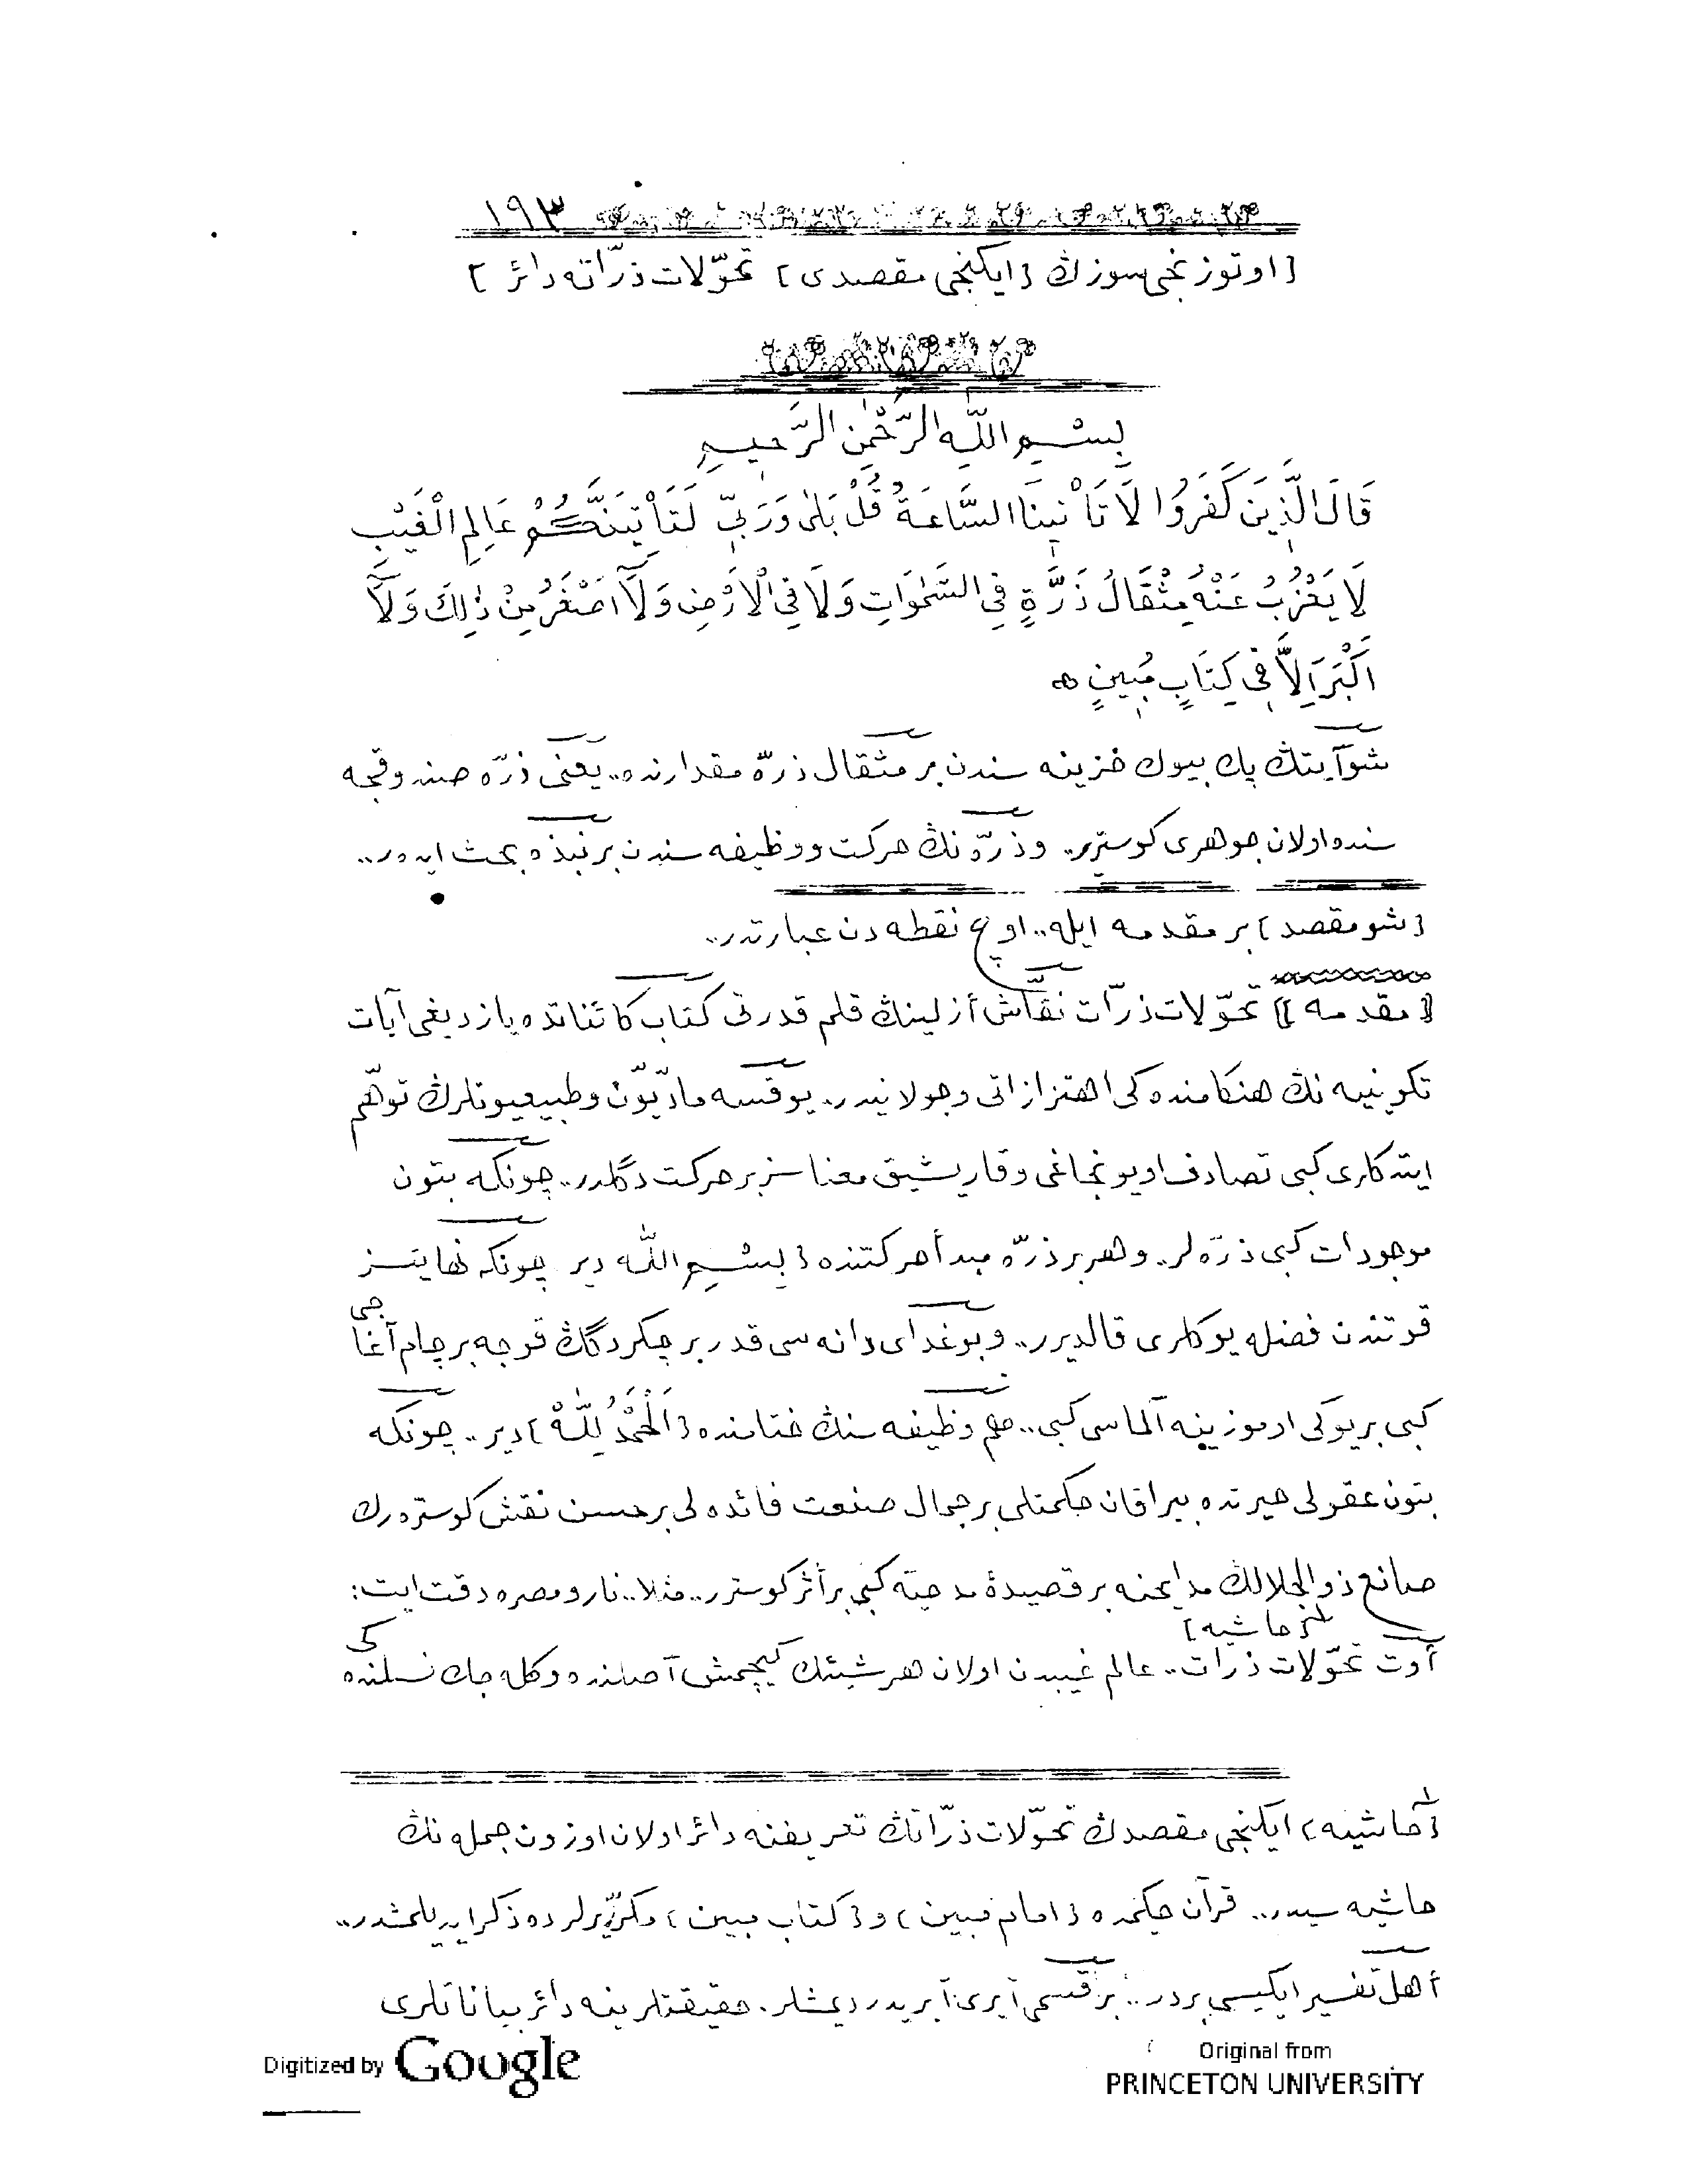 ١٩٣
[اوتوزنجی سوزڭ [ایكنجی مقصدی] تحوّلات ذرّاته دائر]
بِسْمِ اللّٰهِ الرَّحْمٰنِ الرَّحِيمِ
قَالَ الَّذِينَ كَفَرُوا لَا تَأْتِينَا السَّاعَةُ قُلْ بَلٰى وَرَبِّى لَتَأْتِيَنَّكُمْ عَالِمِ الْغَيْبِ
لَا يَعْزُبُ عَنْهُ مِثْقَالُ ذَرَّةٍ فِى السَّمٰوَاتِ وَلَا فِى الْاَرْضِ وَلَٓا اَصْغَرُ مِنْ ذٰلِكَ وَلَٓا
اَكْبَرُ اِلَّا فِى كِتَابٍ مُبِينٍ
شو آیتڭ پك بیوك خزینه سندن بر مثقال ذرّه مقدارنده.. یعنی ذرّه صندوقچه
سنده اولان جوهری كوستریر. و ذرّه نڭ حركت و وظیفه سندن بر نبذه بحث ایدر..
[شو مقصد] بر مقدمه ایله.. اوچ نقطه دن عبارتدر..
[[مقدمه]] تحوّلات ذرّات نقّاش أزلینڭ قلم قدرتی كتاب كائناتده یازدیغی آیات
تكوینیه نڭ هنكامنده كی اهتزازاتی و جولانیدر. یوقسه مادّیّون و طبیعیونلرڭ توهّم
ایتدكلری كبی تصادف اویونجاغی و قاریشیق معناسز بر حركت دگلدر.. چونكه بتون
موجودات كبی ذرّه لر. و هر بر ذرّه مبدأ حركتنده [بِسْمِ اللّٰه دیر چونكه نهایتسز
قوتندن فضله یوكلری قالدیرر.. و بوغدای دانه سی قدر بر چكردگڭ قوجه بر چام آغا
جی
كبی بر یوكی اوموزینه آلماسی كبی.. هم وظیفه سنڭ ختامنده [اَلْحَمْدُ لِلّٰهْ] دیر.. چونكه
بتون عقولی حیرتده بیراقان حكمتلی بر جمال صنعت فائده لی بر حسن نقش كوستره رك
صانع ذو الجلالك مدایحنه بر قصیدۀ مدحیّه كبی بر أثر كوستر.. مثلا.. نار و مصره دقت ایت:
[حاشیه]
أوت تحوّلات ذرات.. عالم غیبدن اولان هر شیئڭ كچمش آصلنده و كله جك نسلنده
كی
[حاشیه] ایكنجی مقصدڭ تحوّلات ذرّاتڭ تعریفنه دائر اولان اوزون جمله نڭ
حاشیه سیدر.. قرآن حكیمده [امام مبین] و [كتاب مبین] مكرّر یرلرده ذكر ایدیلمشدر..
أهل تفسیر ایكیسی بردر.. بر قسمی آیری آیریدر دیمشلر. حقیقتلرینه دائر بیاناتلری
Digitized by Google
Original from
PRINCETON UNIVERSITY